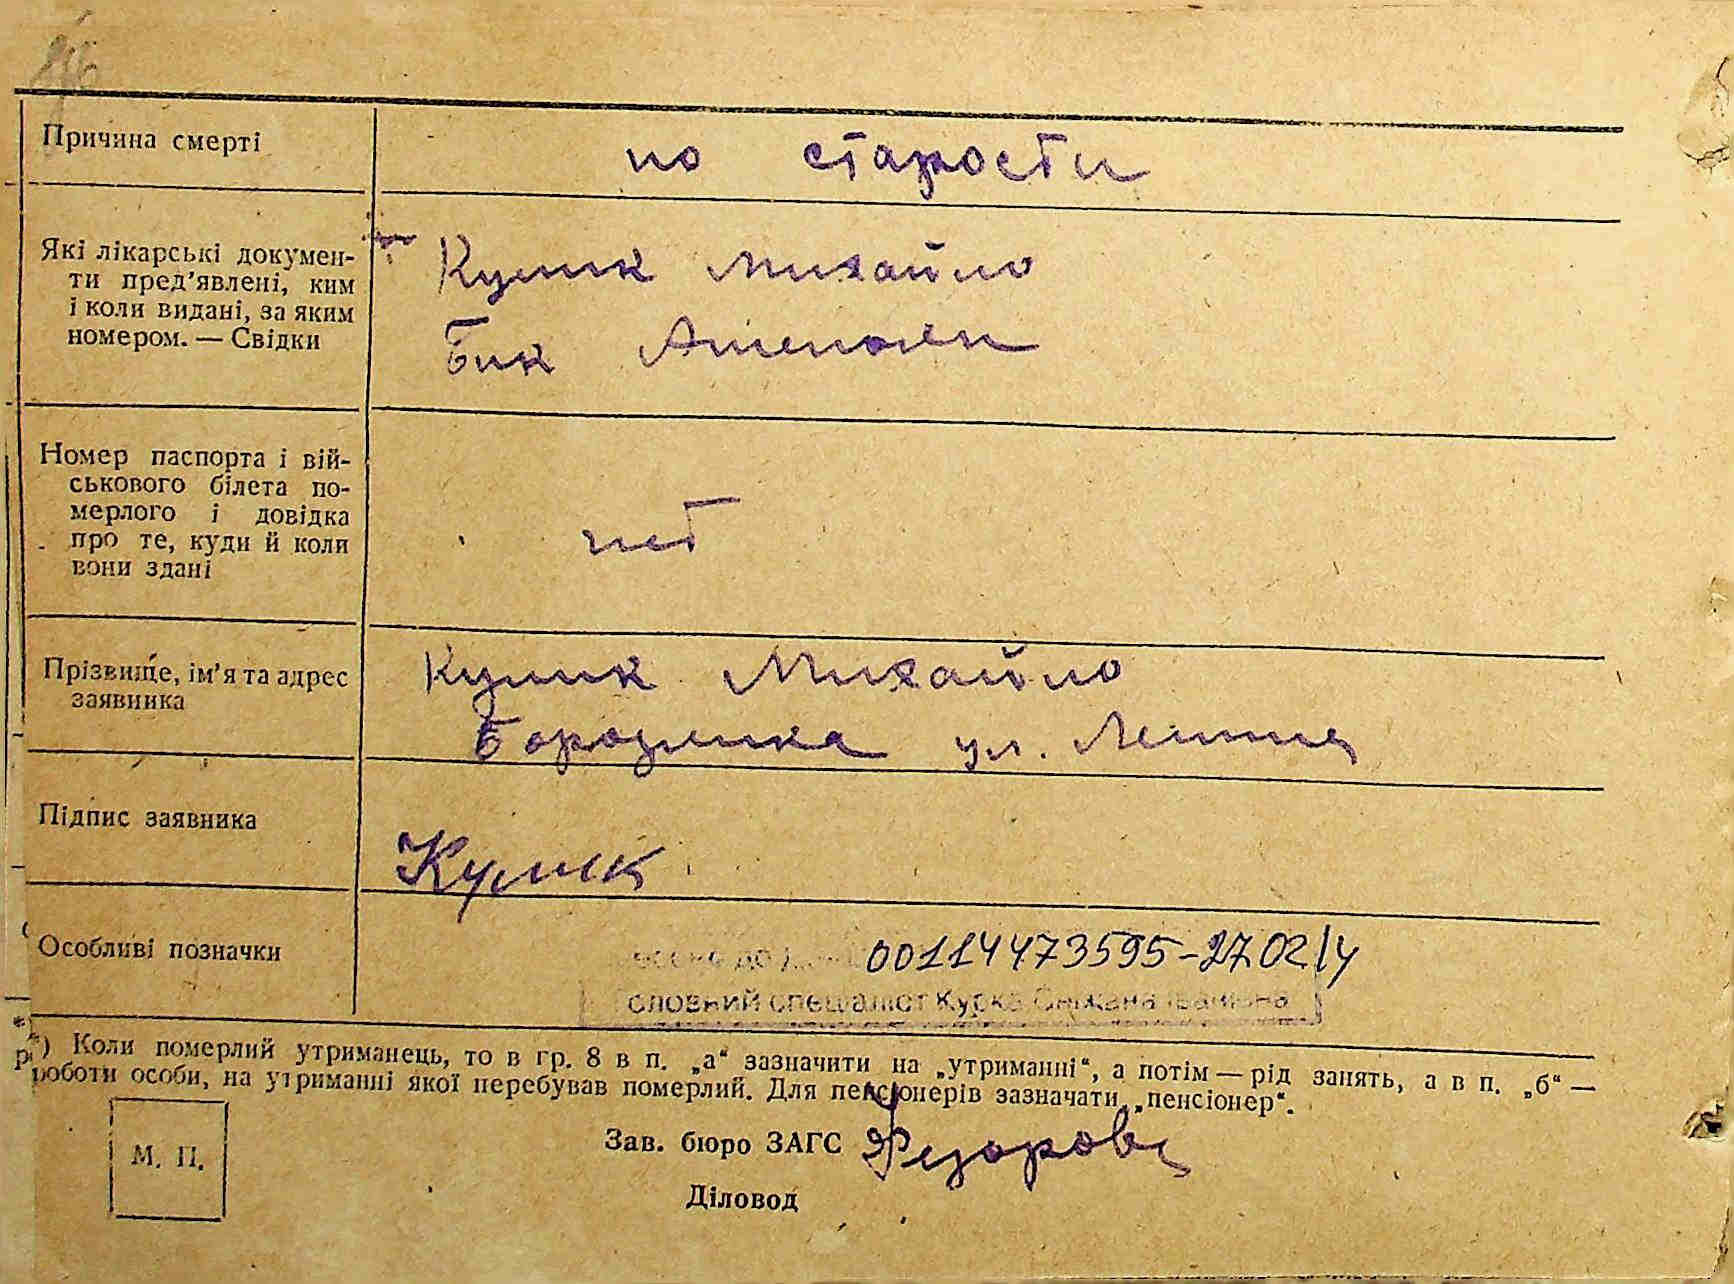 Причина смерті
по старости
Які лікарські докумен-
ти пред'явлені, ким
і коли видані, за яким
номером. — Свідки
Кулик Михайло
Бик
Номер паспорта і вій-
ськового білета по-
мерлого і довідка
про те, куди й коли
вони здані
нет
Прізвище, ім'я та адрес
заявника
Кулик Михайло
Бородянка ул. Ленина
Підпис заявника
Кулик
Особливі позначки
00114473595-2702
Головний спеціаліст Курка Сніжана Іванівна
*) Коли померлий утриманець, то в гр. 8 в п. „а“ зазначити на „утриманні“, а потім — рід занять, а в п. „б“ —
роботи особи, на утриманні якої перебував померлий. Для пенсіонерів зазначати „пенсіонер“.
М. П.
Зав. бюро ЗАГС
Діловод